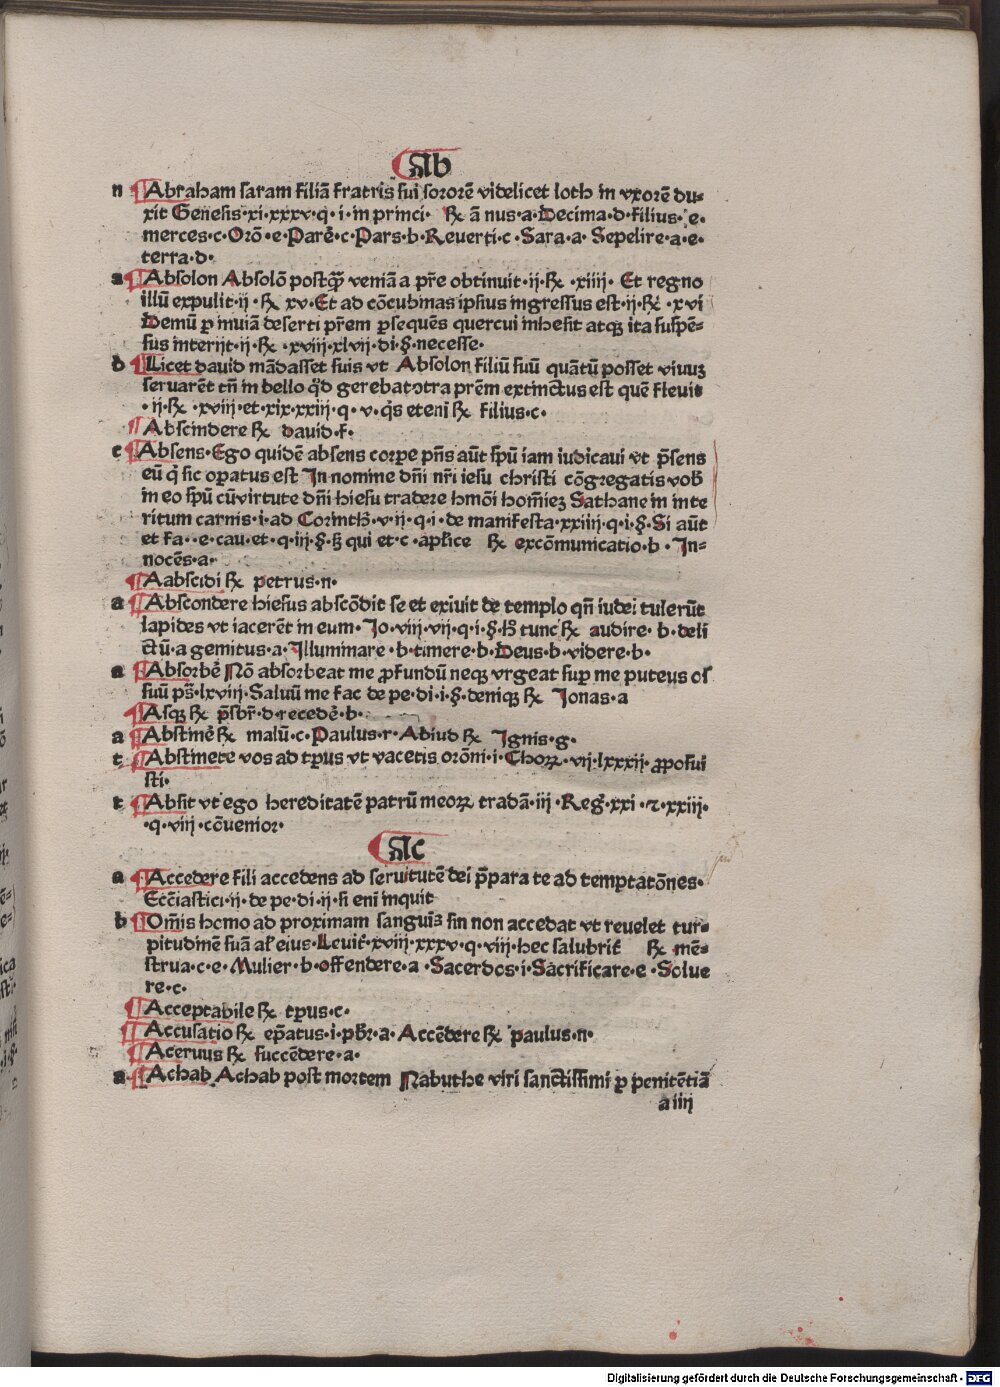 Ab
n Abraham saram filiã fratris sui sororẽ videlicet loth in vxorẽ du⸗
xit Genesis·xi·xxxv·q·i·in princi· ℞ ã nus·a·Decima·d·filius·e·
merces·c·Orõ·e·Parẽ·c·Pars·b·Reuerti·c·Sara·a·Sepelire·a·e·
terra·d·
a Absolon Absolõ postqꝫ veniã a pr̃e obtinuit·ij·℞·xiiij· Et regno
illũ expulit·ij·℞ xv·Et ad cõcubinas ipsius ingressus est·ij·℞·xvi
Demũ ꝑ inuiã deserti pr̃em ꝑsequẽs quercui inhesit atqꝫ ita suspẽ⸗
sus interijt·ij·℞·xviij·xlvij·di·§·necesse·
b Licet dauid mãdasset suis vt Absolon filiũ suũ quãtũ posset viuuꝫ
seruarẽt tñ in bello q̃d gerebat ↄtra prẽm extinctus est quẽ fleuit
·ij·℞·xviij·et·xix·xxiij·q·v·q̃s eteni ℞ filius·c·
Abscindere ℞ dauid·f·
c Absens·Ego quidẽ absens corꝑe pñs aũt spũ iam iudicaui vt p̃sens
eũ q̃ sic oꝑatus est In nomine dñi nr̃i iesu christi cõgregatis vob̃
in eo spũ cũ virtute dñi hiesu tradere hmõi hom̃ieꝫ Sathane in inte
ritum carnis·i·ad Corinth̃·v·ij·q·i·de manifesta·xxiiij·q·i·§·Si aũt
et fa··e·cau·et·q·iij·§·hꝫ qui et·c·apl̃ice ℞ excõmunicatio·b·In⸗
nocẽs·a·
Aabscidi ℞ petrus·n·
a Abscondere hiesus abscõdit se et exiuit de templo qñ iudei tulerũt
lapides vt iacerẽt in eum·Jo·viij·vij·q·i·§·hꝫ tunc ℞ audire·b·deli
ctũ·a gemitus·a·Illuminare·b·timere·b·Deus·b·videre·b·
a Absorbẽ Nõ absorbeat me ꝓfundũ neqꝫ vrgeat suꝑ me puteus os
suũ ps̃·lxviij·Saluũ me fac de pe·di·i·§·deniqꝫ ℞ Jonas·a
Asqꝫ ℞ p̃sbr̃·d·recedẽ·b·
a Abstinẽ ℞ malũ·c·Paulus·r·Abiud ℞ Ignis·g·
t Abstinete vos ad tꝑus vt vacetis orõni·i·Choꝝ·vij·lxxxij·ꝓposui
sti·
t Absit vt ego hereditatẽ patrũ meoꝝ tradã·iij·Reg̃·xxi·⁊·xxiij·
·q·viij·cõuenior·
Ac
a Accedere fili accedens ad seruitutẽ dei p̃para te ad temptatõnes·
Eccĩastici·ij·de pe·di·ij·si enĩ inquit
b Om̃is homo ad proximam sanguĩꝫ sin non accedat vt reuelet tur⸗
pitudinẽ suã al̃ eius·Leuit̃·xviij·xxxv·q·viij·hec salubrit̃ ℞ mẽ⸗
strua·c·e·Mulier·b·offendere·a·Sacerdos·i·Sacrificare·e·Solue
re·c·
Acceptabile ℞ tꝑus·c·
Accusatio ℞ ep̃atus·i·pbr̃·a·Accẽdere ℞ paulus·n·
Aceruus ℞ succẽdere·a·
a Achab Achab post mortem Nabuthe viri sanctissimi ꝑ penitẽtiã
a iiij
Digitalisierung gefördert durch die Deutsche Forschungsgemeinschaft · DFG